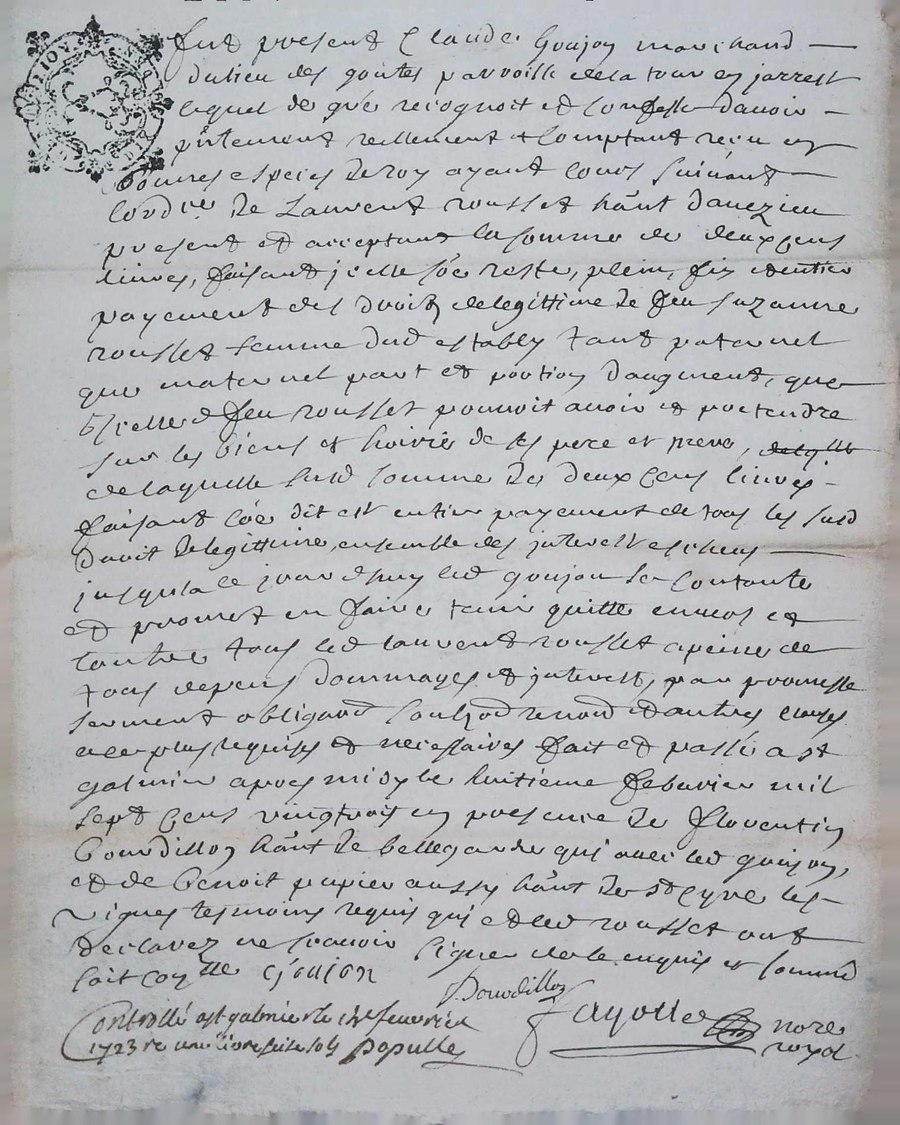 fut present Claude Goujon marchand
du lieu des goutes parroisse de la tour en jarrest
lequel de gré recognoit et confesse d'avoir
reellement et comptant receu en
bonnes especes de roy ayant cours suivant
l'ord.ce de Laurent rousset hánt davezieu
present et acceptant la somme de deux cens
livres, faisant jcelle s'ôe reste, plein, fin et entier
payement des droits de legittime de feu suzanne
rousset femme dud estably tant paternel
que maternel part et portion d'augment, que
jcelle d feu rousset pouvoit avoir et pretendre
sur les biens et hoirie de ses pere et mere,
de laquelle susd somme de deux cens livres
faisant côe dit est entier payement de tous les susd
droit de legittime, ensemble des jnterest escheus
jusqu'a ce jourd'huy led goujon se contante
et promet en faire tenir quitte envers et
contre tous led laurent rousset a peine de
tous depens dommages et jnterest, par promesse
serment obligaôn et autres clauses
a ce plus requises et necessaires fait et passé a st
galmier apres midy le huitieme febvrier mil
sept cens vingt trois en presence de florentin
Bourdillon hánt de bellegarde qui avec led goujon,
et de Benoit papier aussy hánt de st Cyre les
vignes tesmoins requis qui et led rousset ont
declarez ne scavoir signer de ce enquis et sommé
soit coñtlle Goujon
Bourdillon
Controllé a st galmier le fevrier
1723 re une livre seise sols
Fayolle nore
royal